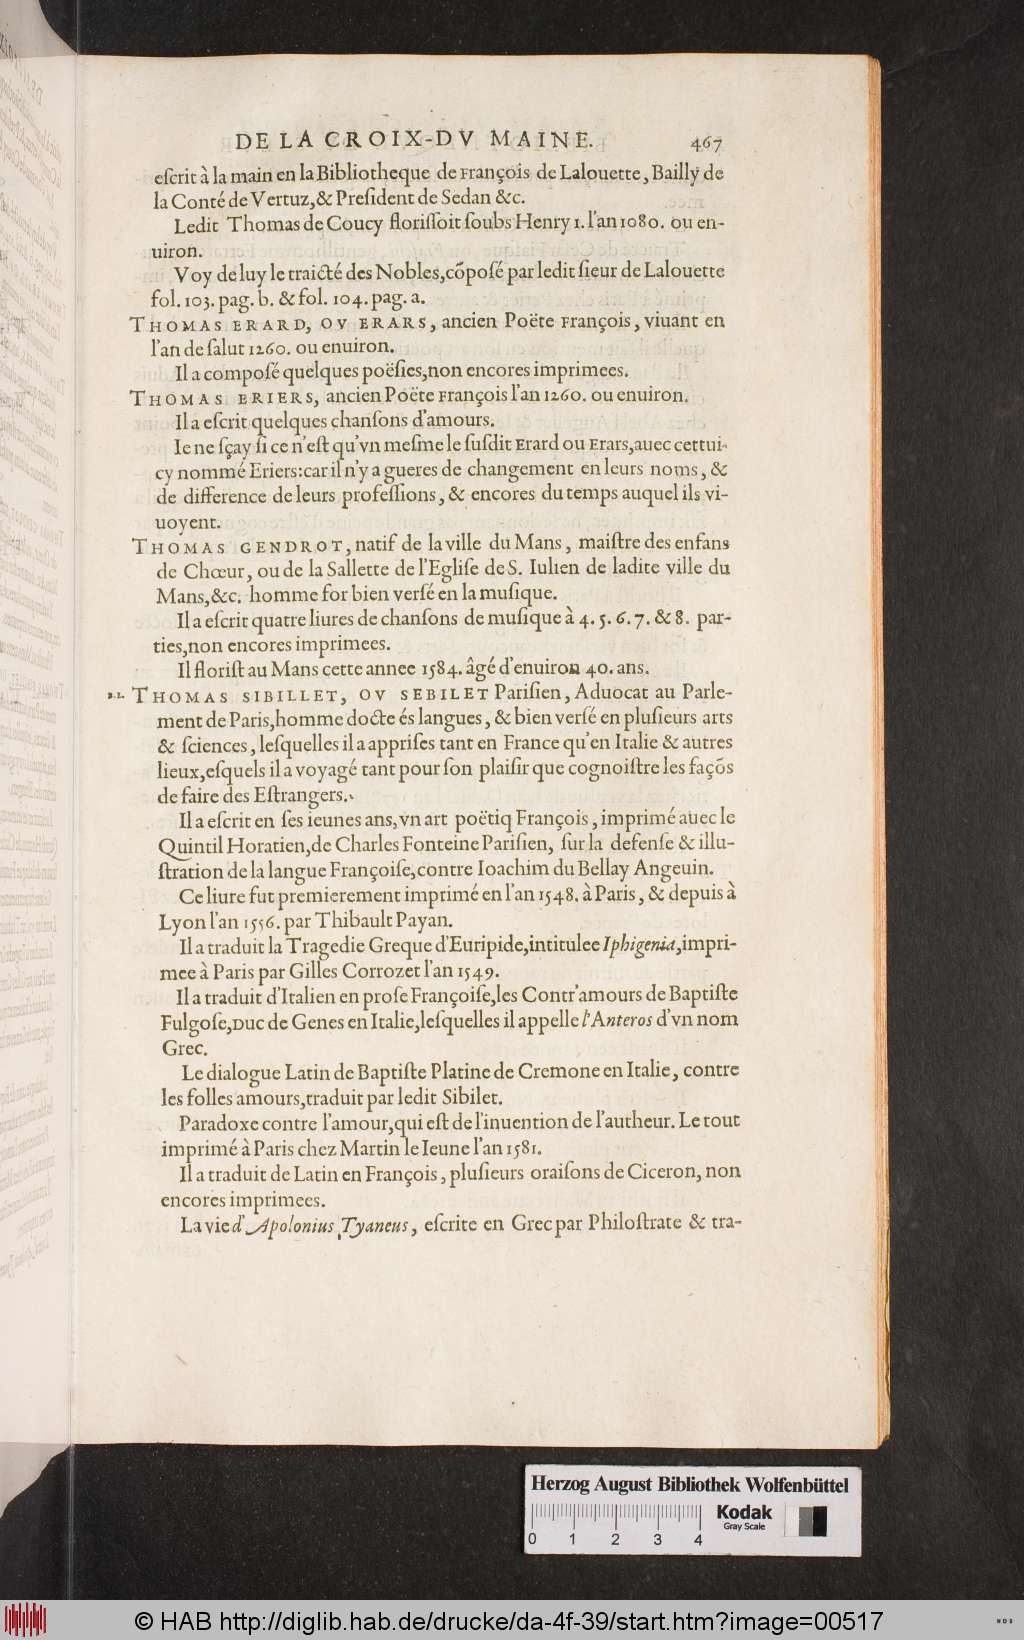 DE LA CROIX-DV MAINE. 467
eſcrit à la main en la Bibliotheque de François de Lalouette, Bailly de
la Conté de Vertuz, & Preſident de Sedan &c.
Ledit Thomas de Coucy floriſſoit ſoubs Henry 1. l'an 1080. ou en-
uiron.
Voy de luy le traicté des Nobles, cõpoſé par ledit ſieur de Lalouette
fol. 103. pag. b. & fol. 104. pag. a.
THOMAS ERARD, OV ERARS, ancien Poëte François, viuant en
l'an de ſalut 1260. ou enuiron.
Il a compoſé quelques poëſies, non encores imprimees.
THOMAS ERIERS, ancien Poëte François l'an 1260. ou enuiron.
Il a eſcrit quelques chanſons d'amours.
Ie ne ſçay ſi ce n'eſt qu'vn meſme le ſuſdit Erard ou Erars, auec cettui-
cy nommé Eriers: car il n'y a gueres de changement en leurs noms, &
de difference de leurs profeſſions, & encores du temps auquel ils vi-
uoyent.
THOMAS GENDROT, natif de la ville du Mans, maiſtre des enfans
de Chœur, ou de la Sallette de l'Egliſe de S. Iulien de ladite ville du
Mans, &c. homme for bien verſé en la muſique.
Il a eſcrit quatre liures de chanſons de muſique à 4. 5. 6. 7. & 8. par-
ties, non encores imprimees.
Il floriſt au Mans cette annee 1584. âgé d'enuiron 40. ans.
THOMAS SIBILLET, OV SEBILET Pariſien, Aduocat au Parle-
ment de Paris, homme docte és langues, & bien verſé en pluſieurs arts
& ſciences, leſquelles il a appriſes tant en France qu'en Italie & autres
lieux, eſquels il a voyagé tant pour ſon plaiſir que cognoiſtre les façõs
de faire des Eſtrangers.
Il a eſcrit en ſes ieunes ans, vn art poëtiq François, imprimé auec le
Quintil Horatien, de Charles Fonteine Pariſien, ſur la defenſe & illu-
ſtration de la langue Françoiſe, contre Ioachim du Bellay Angeuin.
Ce liure fut premierement imprimé en l'an 1548. à Paris, & depuis à
Lyon l'an 1556. par Thibault Payan.
Il a traduit la Tragedie Greque d'Euripide, intitulee Iphigenia, impri-
mee à Paris par Gilles Corrozet l'an 1549.
Il a traduit d'Italien en proſe Françoiſe, les Contr'amours de Baptiſte
Fulgoſe, Duc de Genes en Italie, leſquelles il appelle l'Anteros d'vn nom
Grec.
Le dialogue Latin de Baptiſte Platine de Cremone en Italie, contre
les folles amours, traduit par ledit Sibilet.
Paradoxe contre l'amour, qui eſt de l'inuention de l'autheur. Le tout
imprimé à Paris chez Martin le Ieune l'an 1581.
Il a traduit de Latin en François, pluſieurs oraiſons de Ciceron, non
encores imprimees.
La vie d'Apolonius Tyaneus, eſcrite en Grec par Philoſtrate & tra-
Herzog August Bibliothek Wolfenbüttel
Kodak
Gray Scale
0 1 2 3 4
© HAB http://diglib.hab.de/drucke/da-4f-39/start.htm?image=00517